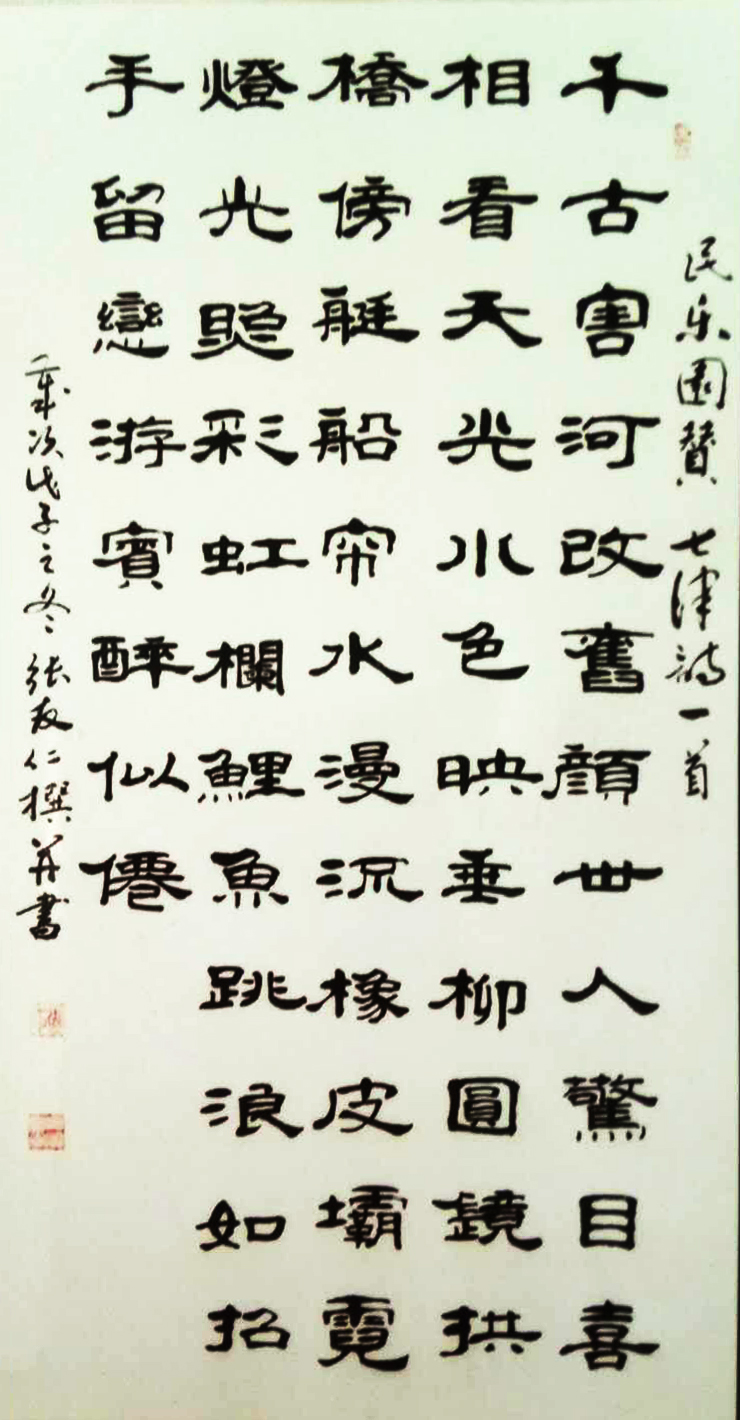 民乐園贊 七律詩一首
千古害河改舊顔世人驚目喜
相看天光水色映垂柳圓鏡拱
橋傍艇船帘水漫流橡皮壩霓
燈光照彩虹欄鯉魚跳浪如招
手留戀游賓醉似僊
歲次戊子之冬 張友仁撰并書